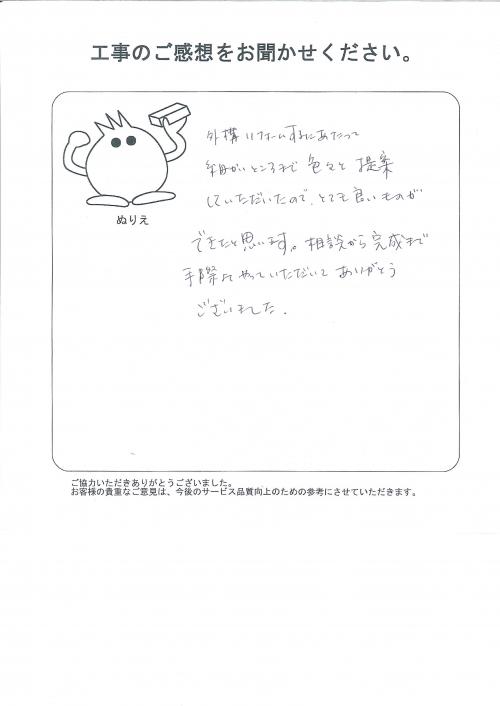 工事のご感想をお聞かせください。
外構リフォームするにあたって
細かいところまで色々と提案
していただいたので、とても良いものが
できたと思います。相談から完成まで
手際よくやっていただいてありがとう
ございました。
ぬりえ
ご協力いただきありがとうございました。
お客様の貴重なご意見は、今後のサービス品質向上のための参考にさせていただきます。